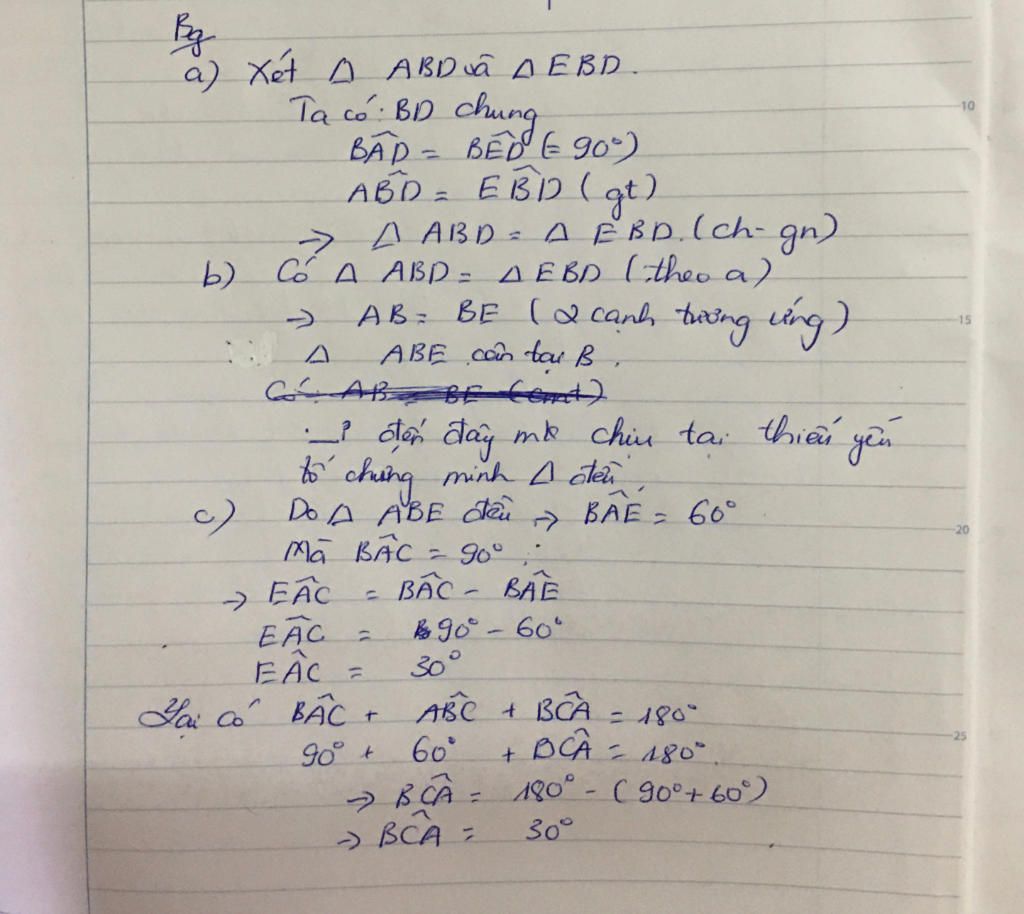 Bg
a) Xét Δ ABD và Δ EBD.
Ta có: BD chung
BÂD = BÊD (= 90°)
AB̂D = EB̂D (gt)
→ Δ ABD = Δ EBD. (ch - gn)
b) Có Δ ABD = Δ EBD (theo a)
→ AB = BE (2 cạnh tương ứng)
Δ ABE cân tại B.
Có: AB = BE (cmt)
→? đến đây mk chịu tại thiếu yếu
tố chứng minh Δ đều
c) Do Δ ABE đều → BÂE = 60°
Mà BÂC = 90° :
→ EÂC = BÂC - BÂE
EÂC = 90° - 60°
EÂC = 30°
Lại có BÂC + AB̂C + BĈA = 180°
90° + 60° + BĈA = 180°.
→ BĈA = 180° - (90° + 60°)
→ BĈA = 30°
10
15
20
25